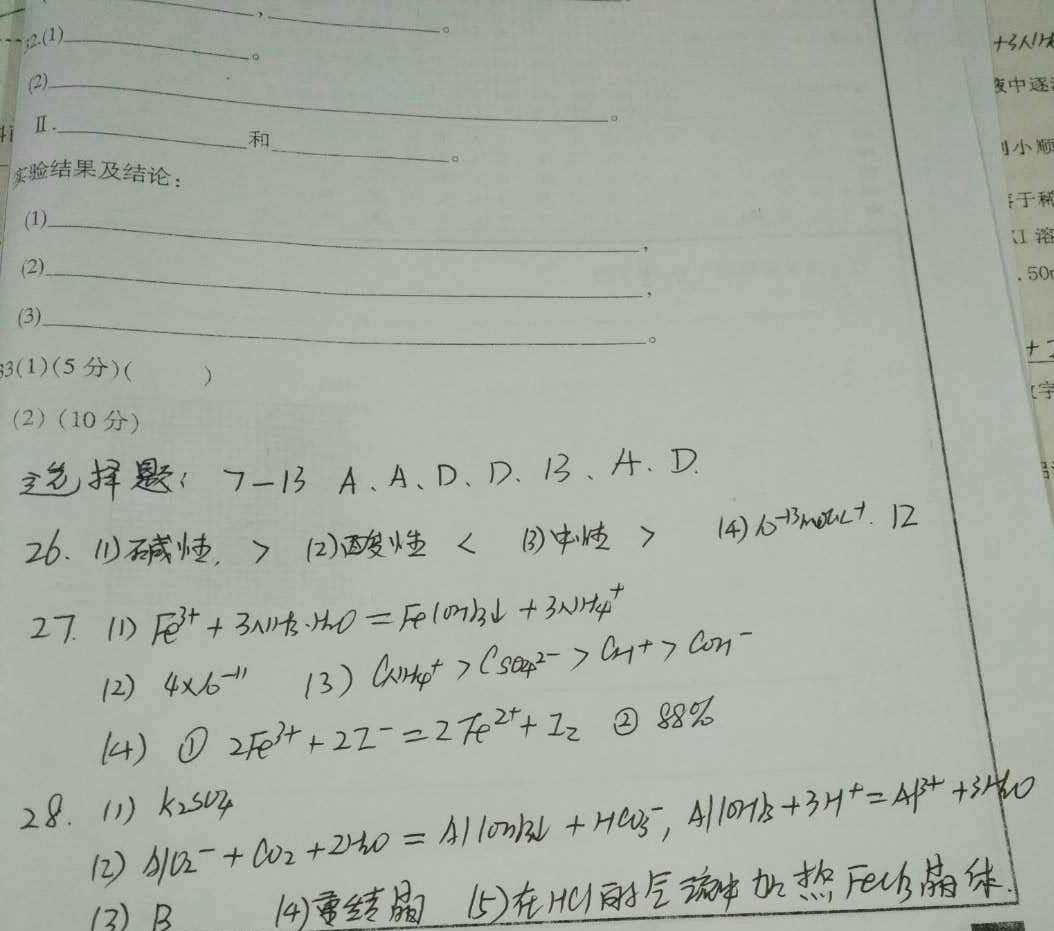 ________,________。
32.(1)________。
(2)________。
Ⅱ.________和________。
实验结果及结论:
(1)________,
(2)________,
(3)________。
33(1)(5分)(  )
(2)(10分)
选择题: 7—13 A、A、D、D、B、A、D.
26. (1)碱性, > (2)酸性 < (3)中性 > (4)10⁻¹³mol·L⁻¹. 12
27. (1) Fe³⁺ + 3NH₃·H₂O = Fe(OH)₃↓ + 3NH₄⁺
(2) 4×10⁻¹¹ (3) CNH₄⁺ > CSO₄²⁻ > CH⁺ > COH⁻
(4) ① 2Fe³⁺ + 2I⁻ = 2Fe²⁺ + I₂ ② 88%
28. (1) K₂SO₄
(2) AlO₂⁻ + CO₂ + 2H₂O = Al(OH)₃↓ + HCO₃⁻, Al(OH)₃ + 3H⁺ = Al³⁺ + 3H₂O
(3) B (4)重结晶 (5)在HCl的气流中加热FeCl₃晶体.
+3NH
液中逐
小顺
于稀
KI 溶
.50
字